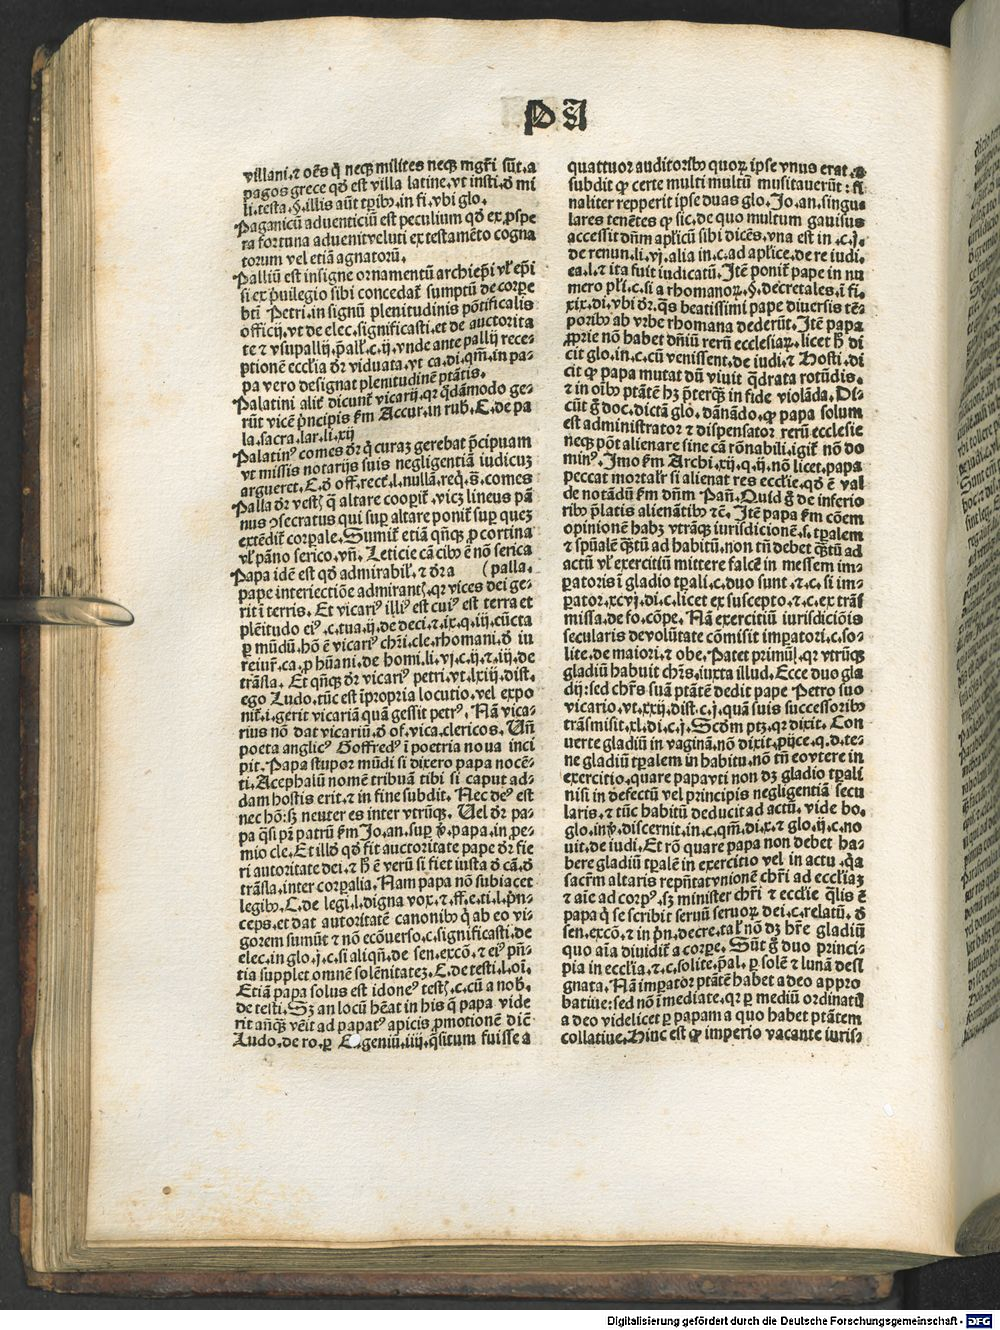 PA
villani.⁊ oēs q̄ neqꝫ milites neqꝫ mgr̄i sūt.a
pagos grece qď est villa latine.vt insti.ď mi
li.testa.§.illis aūt tꝑibꝰ.in fi.vbi glo.
Paganicū aduenticiū est peculium qď ex ꝓspe
ra fortuna aduenit veluti ex testamēto cogna
torum vel etiā agnatorū.
Palliū est insigne ornamentū archiep̄i vl̓ ep̄i
si ex p̄uilegio sibi concedat᷑ sumptū de corꝑe
bt̄i Petri.in signū plenitudinis pōtificalis
officij.vt de elec.significasti.et de auctorita
te ⁊ vsu pallij.ꝑall̓.c.ij.vnde ante pallij rece-
ptionē eccl̓ia dr̄ viduata.vt ca.di.qm̄.in pa-
pa vero designat plenitudinē ptātis.
Palatini alit᷑ dicunt᷑ vicarij.qr q̄dāmodo ge-
rūt vicē p̄ncipis ẜm Accur.in rub.C.de pa
la.sacra.lar.li.xij
Palatinꝰ comes dr̄ q̄ curaꝫ gerebat p̄cipuam
vt missis notarijs suis negligentiā iudicuꝫ
argueret.C.ď off.rect̓.l.nullā.req̄.s̄.comes
Palla dr̄ vestꝭ q̄ altare cooꝑit᷑.vicꝫ lineus pā
nus ꝯsecratus qui suꝑ altare ponit᷑ suꝑ queꝫ
extēdit᷑ corꝑale.Sumit᷑ etiā qn̄qꝫ ꝓ cortina
vl̓ pāno serico.vn̄.Leticie cā cibꝰ ē nō serica
Papa idē est qď admirabil̓.⁊ dr̄ a (palla.
pape interiectiōe admirantꝭ.qr vices dei ge-
rit ī terris. Et vicariꝰ illiꝰ est cuiꝰ est terra et
plēitudo eiꝰ.c.tua.ij.de deci.⁊.ix.q.iij.cūcta
ꝑ mūdū.hō ē vicariꝰ chr̄i.cle.rhomani.ď iu
reiur̄.ca.ꝓ hūani.de homi.li.vj.c.ij.⁊.iij.de
trāsla. Et qn̄qꝫ dr̄ vicariꝰ petri.vt.lxiij.dist.
ego Ludo.tūc est īpropria locutio.vel expo
nit᷑.i.gerit vicariā quā gessit petrꝰ. Nā vica-
rius nō dat vicariū.ď of.vica.clericos. Un̄
poeta anglicꝰ Goffredꝰ ī poetria noua inci
pit.Papa stupor mūdi si dixero papa nocē-
ti.Acephalū nomē tribuā tibi si caput ad-
dam hostis erit.⁊ in fine subdit. Nec deꝰ est
nec hō:sꝫ neuter es inter vtrūqꝫ. Uel dr̄ pa-
pa q̄si pr̄ patrū ẜm Jo.an.suꝑ ꝟ.papa.in ꝓe-
mio cle.Et illď qď fit auctoritate pape dr̄ fie
ri autoritate dei.⁊ h̄ ē verū si fiet iusta ď cā.ď
trāsla.inter corꝑalia.Nam papa nō subiacet
legibꝰ.C.de legi.l.digna vox.⁊.ff.e.ti.l.p̄n-
ceps.et dat autoritatē canonibꝰ q̄ ab eo vi-
gorem sumūt ⁊ nō ecōuerso.c.significasti.de
elec.in glo.j.c.si aliqn̄.de sen.excō.⁊ eiꝰ pn̄-
tia supplet omnē solēnitateꝫ.C.de testi.l.oī.
Etiā papa solus est idoneꝰ testꝭ.c.cū a nob̓.
de testi.Sꝫ an locū hēat in his q̄ papa vide
rit anq̄ꝫ vēit ad papatꝰ apicis ꝓmotionē diē
Ludo.de ro.ꝑ E genīu.iiij.q̄situm fuisse a
quattuor auditoribꝰ quoꝝ ipse vnus erat.⁊
subdit ꝙ certe multi multū musitauerūt:fi
naliter repperit ipse duas glo.Jo.an.singu
lares tenētes ꝙ sic.de quo multum gauisus
accessit dn̄m apl̓icū sibi dicēs.vna est in.c.j.
de renun.li.vj.alia in.c.ad apl̓ice.de re iudi.
ea.l.⁊ ita fuit iudicatū.Itē ponit᷑ pape in nu
mero pl̓i.c.si a rhomanoꝝ.§.decretales.ī fi.
xix.di.vbi dr̄.qs beatissimi pape diuersis tē-
poribꝰ ab vrbe rhomana dederūt.Itē papa
ꝓprie nō habet dn̄iū rerū ecclesiaꝝ.licet h̄ di
cit glo.in.c.cū venissent.de iudi.⁊ Hosti.di
cit ꝙ papa mutat dū viuit q̄drata rotūdis.
⁊ in oībꝰ ptātē hꝫ p̄terqꝫ in fide violāda.Di-
cūt g̊ doc.dictā glo.dānādo.ꝙ papa solum
est administrator ⁊ dispensator rerū ecclesie
neqꝫ pōt alienare sine cā rōnabili.igit᷑ nō do
minꝰ.Imo ẜm Archi.xij.q.ij.nō licet.papa
peccat mortalr̄ si alienat res eccl̓ie.qď ē val
de notādū ẜm dn̄m Pan̄.Quid g̊ de inferio
ribꝰ p̄latis alienātibꝰ ⁊c̄.Itē papa ẜm cōem
opinionē habꝫ vtrāqꝫ iurisdictionē.s.tꝑalem
⁊ spūalē q̄ꝫtū ad habitū.non tn̄ debet q̄ꝫtū ad
actū vl̓ exercitiū mittere falcē in messem im-
ꝑatoris ī gladio tꝑali.c.duo sunt.⁊.c.si im-
ꝑator.xcvj.di.c.licet ex suscepto.⁊.c.ex trās
missa.de fo.cōpe. Nā exercitiū iurisdictiōis
secularis de volūtate cōmisit imꝑatori.c.so-
lite.de maiori.⁊ obe. Patet primū.qr vtrūqꝫ
gladiū habuit chr̄s.iuxta illud. Ecce duo gla
dij:sed chr̄s suā ptātē dedit pape Petro suo
vicario.vt.xxij.dist.c.j.quā suis successoribꝰ
trāsmisit.xl.di.c.j. Scd̓m ptꝫ.qr dixit. Con
uerte gladiū in vaginā.nō dixit.pijce.q.d.te-
ne gladiū tꝑalem in habitu.nō tn̄ eo vtere in
exercitio.quare papa vti non dꝫ gladio tꝑali
nisi in defectū vel principis negligentiā secu
laris.⁊ tūc habitū deducit ad actū. vide bo.
glo.inꝟ.discernit.in.c.qm̄.di.x.⁊ glo.ij.c.no
uit.de iudi. Et rō quare papa non debet ha-
bere gladiū tꝑalē in exercitio vel in actu.q̄a
sacrm̄ altaris rep̄ntat vnionē chr̄i ad eccl̓iaꝫ
⁊ aīe ad corpꝰ.sꝫ minister chr̄i ⁊ eccl̓ie q̄lis ē
papa q̄ se scribit seruū seruoꝝ dei.c.relatū.ď
sen.excō.⁊ in p̄n.decre.tal̓ nō dꝫ hr̄e gladiū
quo aīa diuidit᷑ a corꝑe. Sūt g̊ duo princi-
pia in eccl̓ia.⁊.c.solite.ꝑal̓.ꝑ solē ⁊ lunā desi
gnata.Nā imꝑator ptātē habet a deo appro
batiue:sed nō īmediate.qr ꝑ mediū ordinatū
a deo videlicet ꝑ papam a quo habet ptātem
collatiue.Hinc est ꝙ imperio vacante iuris-
Digitalisierung gefördert durch die Deutsche Forschungsgemeinschaft - DFG